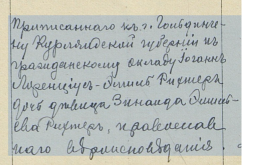 Приписаннаго къ г. Гольдинге-
ну Курляндской губерніи къ
гражданскому окладу Іоганъ
Лоренціусъ-Фишъ Рихтеръ
дочь девица Зинаида
ева Рихтеръ, православ
наго вѣроисповѣданія.